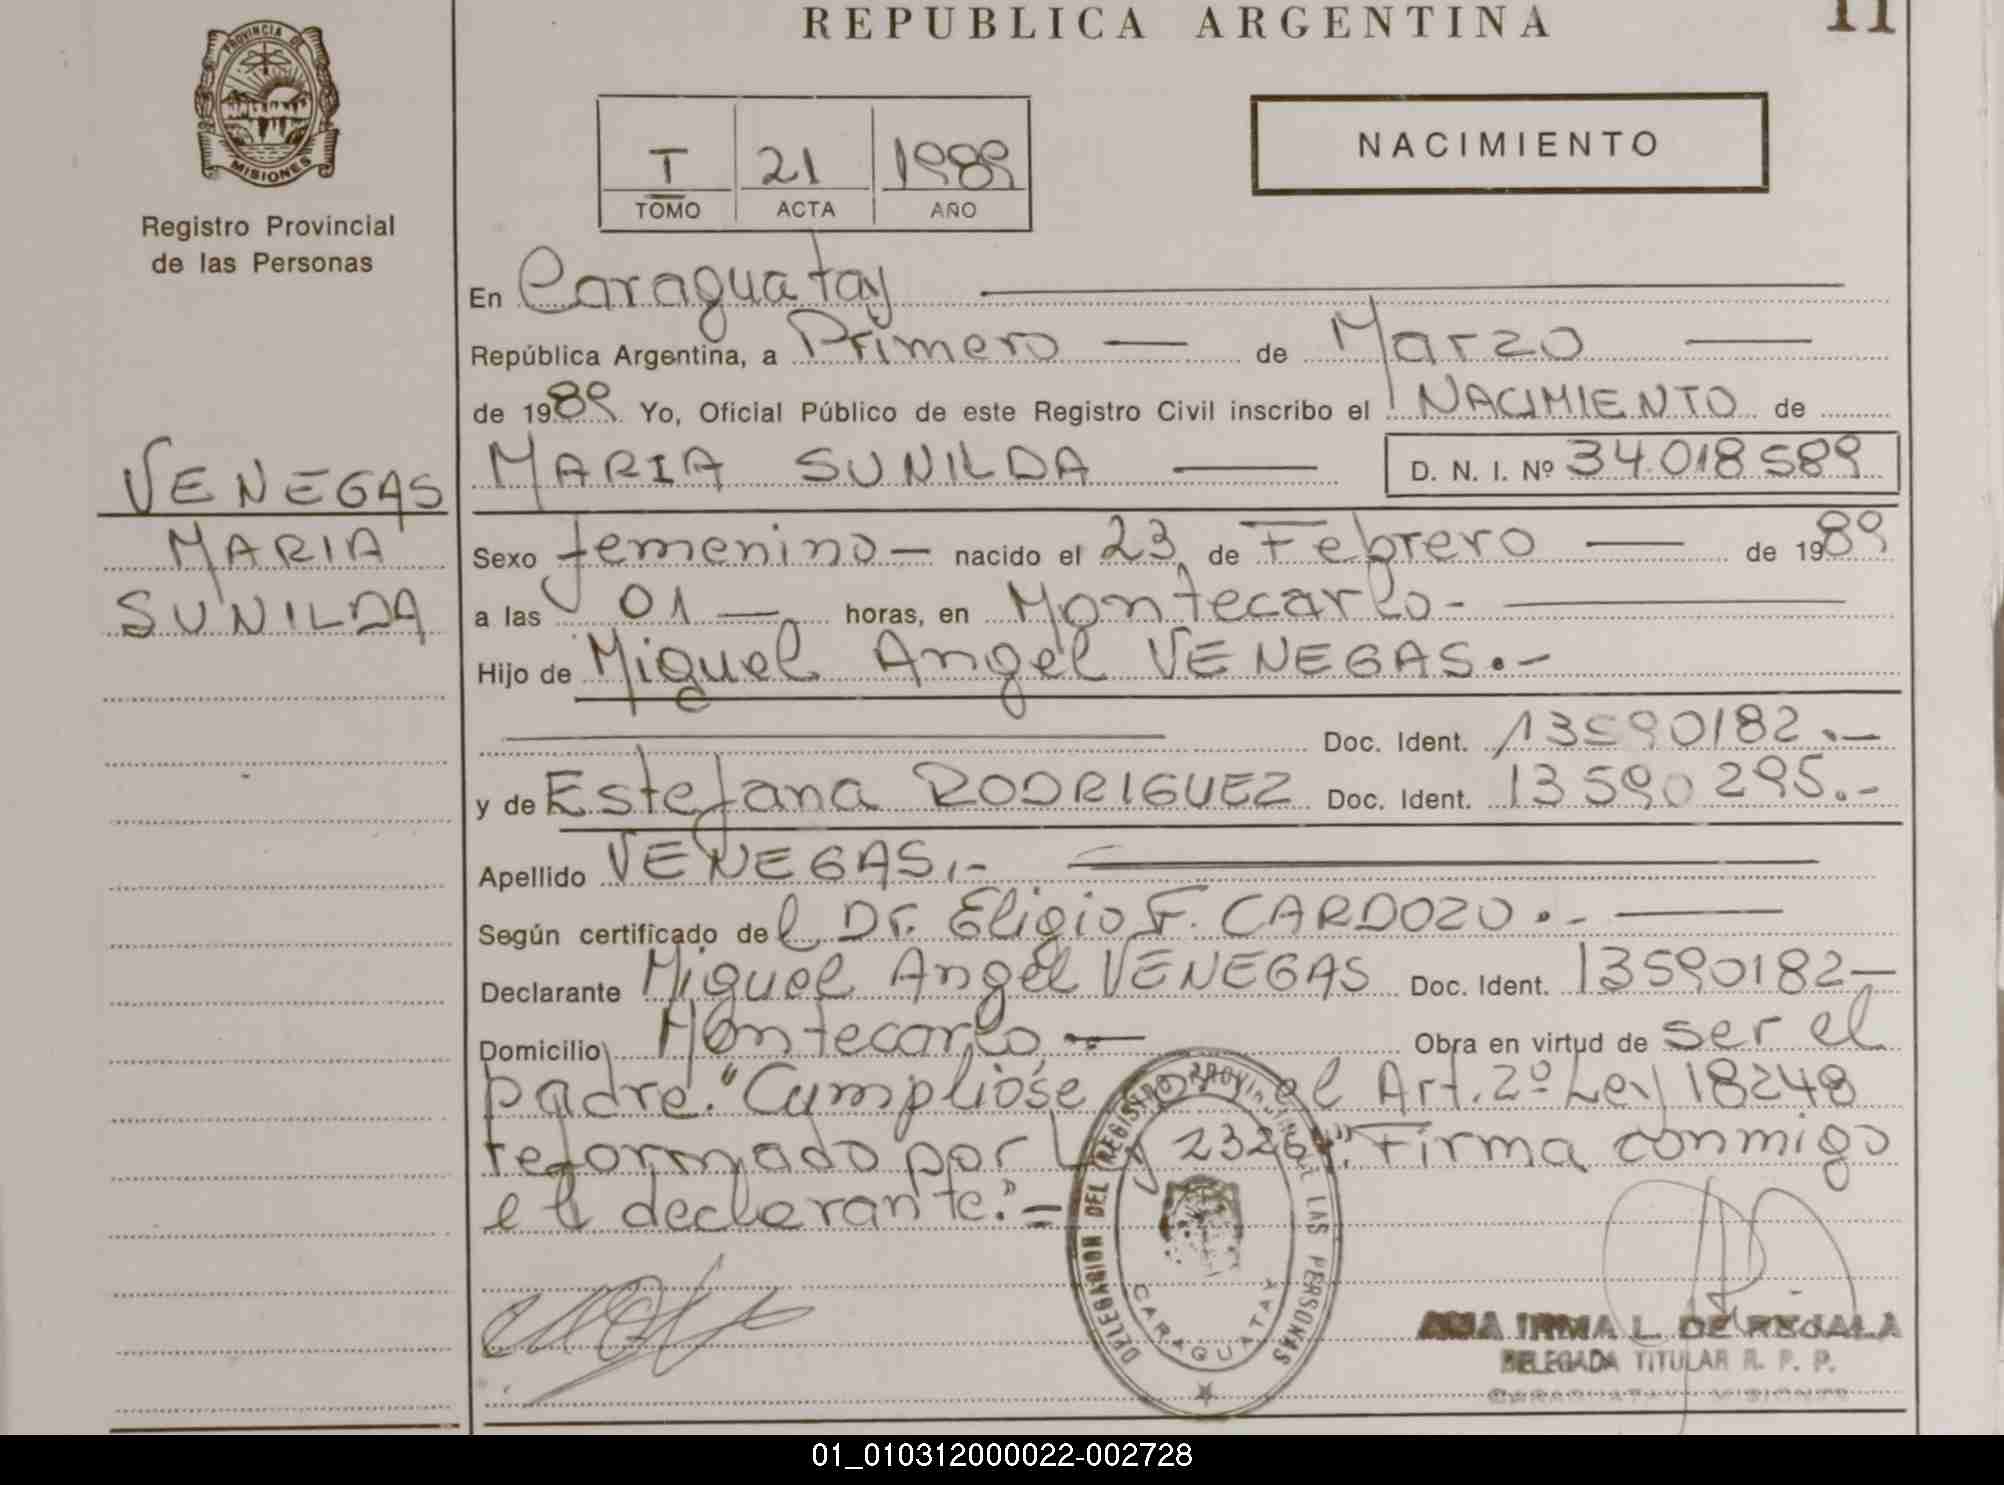 REPUBLICA ARGENTINA
11
PROVINCIA DE
MISIONES
Registro Provincial
de las Personas
T 21 1989
TOMO ACTA AÑO
NACIMIENTO
En Caraguatay
República Argentina, a Primero — de Marzo —
de 1989 Yo, Oficial Público de este Registro Civil inscribo el NACIMIENTO de
MARIA SUNILDA — D. N. I. Nº 34.018.589
VENEGAS
MARIA
SUNILDA
Sexo femenino — nacido el 23 de Febrero — de 1989
a las 01 — horas, en Montecarlo-
Hijo de Miguel Angel VENEGAS.-
Doc. Ident. 13590182.-
y de Estefana RODRIGUEZ Doc. Ident. 13590295.-
Apellido VENEGAS.-
Según certificado del Dr. Eligio F. CARDOZO.-
Declarante Miguel Angel VENEGAS Doc. Ident. 13590182-
Domicilio Montecarlo — Obra en virtud de ser el
padre. "Cumplióse el Art. 2º Ley 18248
reformado por Ley Firma conmigo
el declarante."-
DELEGACION DEL REGISTRO PROVINCIAL LAS PERSONAS
CARAGUATAY
IRMA L. DE
DELEGADA TITULAR R. P. P.
CARAGUATAY MISIONES
01_010312000022-002728